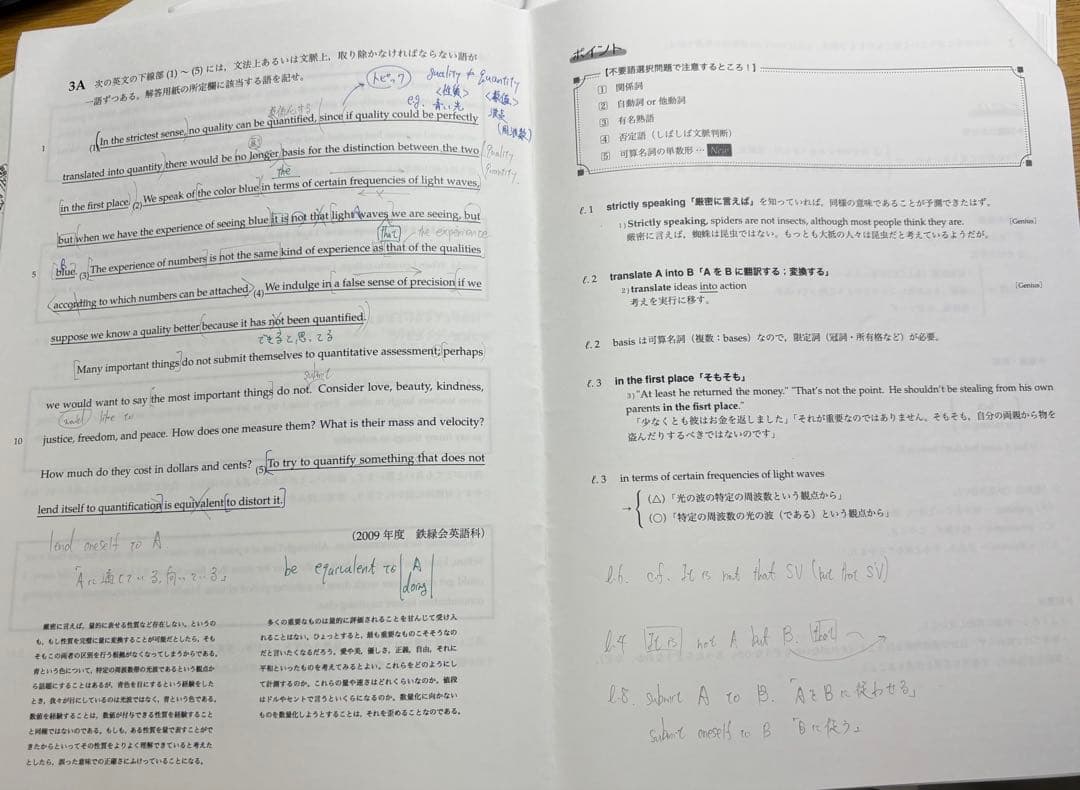 3A 次の英文の下線部 (1) ～ (5) には，文法上あるいは文脈上，取り除かなければならない語が
一語ずつある。解答用紙の所定欄に該当する語を記せ。
トピック
quality ≠ quantity
〈性質〉 〈数値〉
e.g. 青い光
(周波数)
1 (1)In the strictest sense, no quality can be quantified, since if quality could be perfectly
translated into quantity there would be no longer basis for the distinction between the two
quality
quantity
the
in the first place. (2)We speak of the color blue in terms of certain frequencies of light waves,
but when we have the experience of seeing blue it is not that light waves we are seeing, but
that the experience
5 blue. (3)The experience of numbers is not the same kind of experience as that of the qualities
according to which numbers can be attached. (4)We indulge in a false sense of precision if we
suppose we know a quality better because it has not been quantified.
できると思ってる
Many important things do not submit themselves to quantitative assessment; perhaps
submit
we would want to say the most important things do not. Consider love, beauty, kindness,
like to
10 justice, freedom, and peace. How does one measure them? What is their mass and velocity?
How much do they cost in dollars and cents? (5)To try to quantify something that does not
lend itself to quantification is equivalent to distort it.
(2009 年度 鉄緑会英語科)
lend oneself to A
「Aに適している, 向いている」
be equivalent to A
doing
厳密に言えば，量的に表せる性質など存在しない。というの
も，もし性質を完璧に量に変換することが可能だとしたら，そも
そもこの両者の区別を行う根拠がなくなってしまうからである。
青という色について，特定の周波数帯の光波であるという観点か
ら話題にすることはあるが，青色を目にするという経験をした
とき，我々が目にしているのは光波ではなく，青という色である。
数値を経験することは，数値が付与できる性質を経験すること
と同種ではないのである。もしも，ある性質を量で表すことがで
きたからといってその性質をよりよく理解できていると考えた
としたら，誤った意味での正確さにふけっていることになる。
多くの重要なものは量的に評価されることを甘んじて受け入
れることはない。ひょっとすると，最も重要なものこそそうなの
だと言いたくなるだろう。愛や美，優しさ，正義，自由，それに
平和といったものを考えてみるとよい。これらをどのようにし
て計測するのか。これらの量や速さはどれくらいなのか。値段
はドルやセントで言うといくらになるのか。数量化に向かない
ものを数量化しようとすることは，それを歪めることなのである。
ポイント
【不要語選択問題で注意するところ！】
1 関係詞
2 自動詞 or 他動詞
3 有名熟語
4 否定語（しばしば文脈判断）
5 可算名詞の単数形 … New
ℓ.1 strictly speaking「厳密に言えば」を知っていれば，同様の意味であることが予測できたはず。
1) Strictly speaking, spiders are not insects, although most people think they are. [Genius]
厳密に言えば，蜘蛛は昆虫ではない。もっとも大抵の人々は昆虫だと考えているようだが。
ℓ.2 translate A into B「A を B に翻訳する；変換する」
2) translate ideas into action [Genius]
考えを実行に移す。
ℓ.2 basis は可算名詞（複数：bases）なので，限定詞（冠詞・所有格など）が必要。
ℓ.3 in the first place「そもそも」
3) "At least he returned the money." "That's not the point. He shouldn't be stealing from his own
parents in the fisrt place."
「少なくとも彼はお金を返しました」「それが重要なのではありません。そもそも，自分の両親から物を
盗んだりするべきではないのです」
ℓ.3 in terms of certain frequencies of light waves
→ （△）「光の波の特定の周波数という観点から」
（○）「特定の周波数の光の波（である）という観点から」
l.6. c.f. It is not that SV (but that SV)
l.4 It is not A but B that
l.8. submit A to B.「AをBに従わせる」
submit oneself to B「Bに従う」